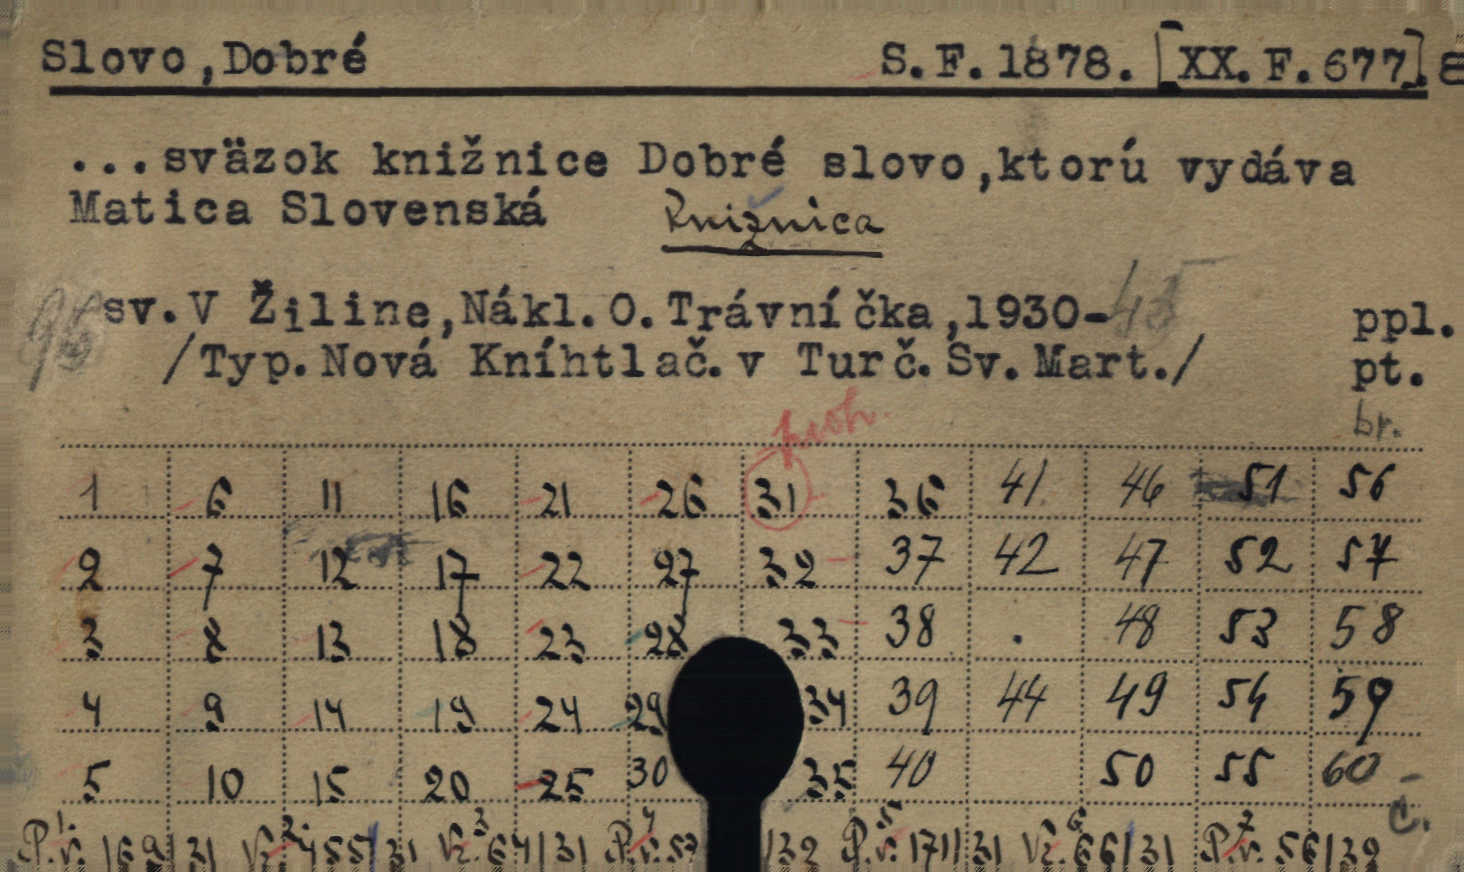 Slovo,Dobré S.F.1878. [XX.F.677].8
...sväzok knižnice Dobré slovo,ktorú vydáva
Matica Slovenská Knižnica
95 sv.V Žiline,Nákl.O.Trávníčka,1930-45 ppl.
/Typ.Nová Kníhtlač.v Turč.Sv.Mart./ pt.
br.
1 6 11 16 21 26 31 36 41 46 51 56
2 7 12 17 22 27 32 37 42 47 52 57
3 8 13 18 23 28 33 38 . 48 53 58
4 9 14 19 24 29 34 39 44 49 54 59
5 10 15 20 25 30 35 40 50 55 60 -
c.
1. P.v. 169/31 2. Vz. 455/31 3 Vz. 64/31 4 P.v. 57 /32 5 P.v. 1711/31 6 Vz. 66/31 7 P.v. 56/32